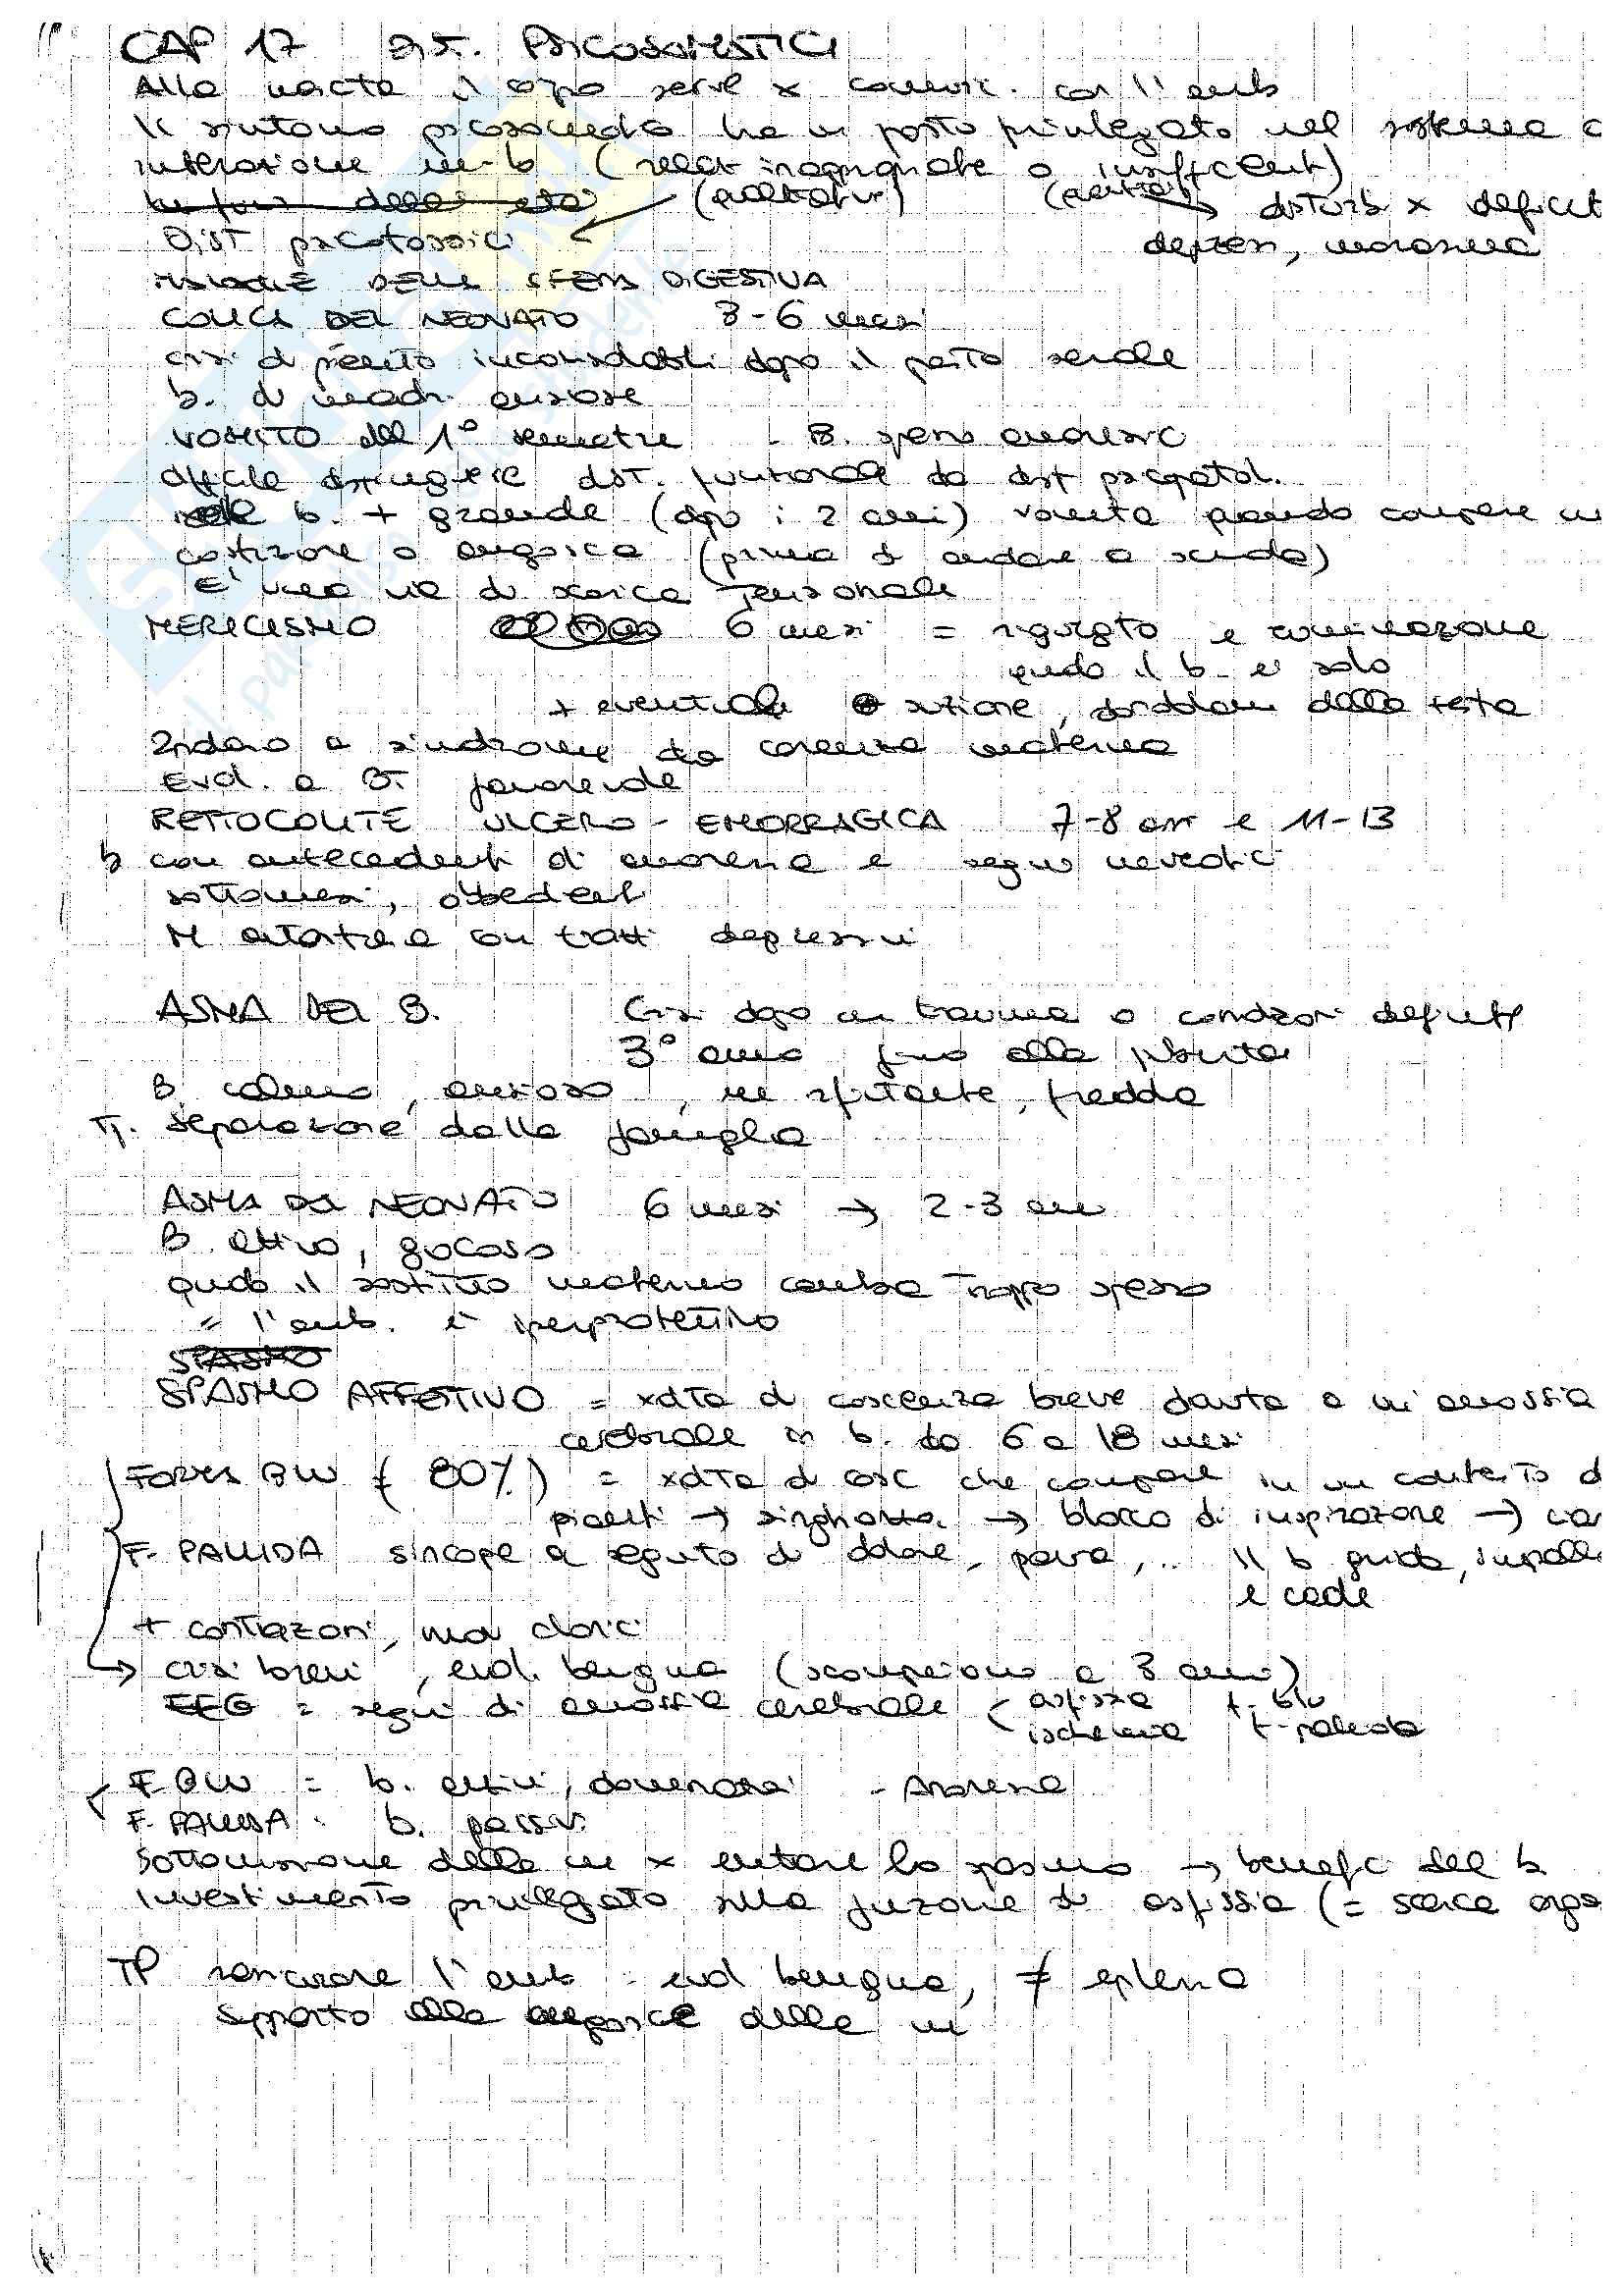 CAP 17 DIST. PSICOSOMATICI
Alla nascita il corpo serve x comunic. con l'amb
Il sintomo psicosomatico ha un posto privilegiato nel sistema
interazione m-b (relaz inappropriate o insufficienti)
(qualitativi) disturbi x deficit
DIST psicotossici depress, marasma
MALATTIE DELLA SFERA DIGESTIVA
COLICA DEL NEONATO 3-6 mesi
crisi di pianto inconsolabili dopo il pasto serale
b. di madri ansiose
VOMITO del 1° semestre - B. spesso anoressico
difficile distinguere dist. funzionale da dist psicopatol.
b. + grande (dopo i 2 anni) vomita quando compare un
costrizione o angoscia (prima di andare a scuola)
E' una via di scarica tensionale
MERICISMO 6 mesi = rigurgito e ruminazione
qndo il b. è solo
+ eventuale suzione, dondolam della testa
Indaco a sindrome da carenza materna
Evol. a BT. favorevole
RETTOCOLITE ULCERO-EMORRAGICA 7-8 anni e 11-13
b con antecedenti di anoressia e segni nevrotici
sottomessi, obbedienti
M autoritaria con tratti depressivi
ASMA DEL B. Crisi dopo un trauma o condizioni definite
3° anno fino alla pubertà
B. calmo, ansioso, m rifiutante, fredda
T. separazione dalla famiglia
ASMA DEL NEONATO 6 mesi → 2-3 anni
B. attivo, giocoso
quando il sostituto materno cambia troppo spesso
= l'amb. è iperprotettivo
SPASMO
SPASMO AFFETTIVO = xdita di coscienza breve dovuta a un'anossia
cerebrale in b. da 6 a 18 mesi
FORMA BLU (80%) = xdita di cosc che compare in un contesto d
pianti → singhiozzi → blocco di inspirazione → cian
F. PALLIDA sincope a seguito di dolore, paura, .. Il b grida, impalli
e cade
+ contrazioni, mov clonici
→ crisi brevi, evol. benigna (scompaiono a 3 anni)
EEG = segni di anossia cerebrale < asfissia f-blu
ischemia f-pallida
F BLU = b. attivi, dominatori - Anoressia
F. PALLIDA = b. passivi
Sottomissione della m x evitare lo spasmo → benefici del b
Investimento privilegiato sulla funzione di asfissia (= scarica
TP rassicurare l'amb = evol benigna, ≠ epilessia
Supporto alle angosce della m